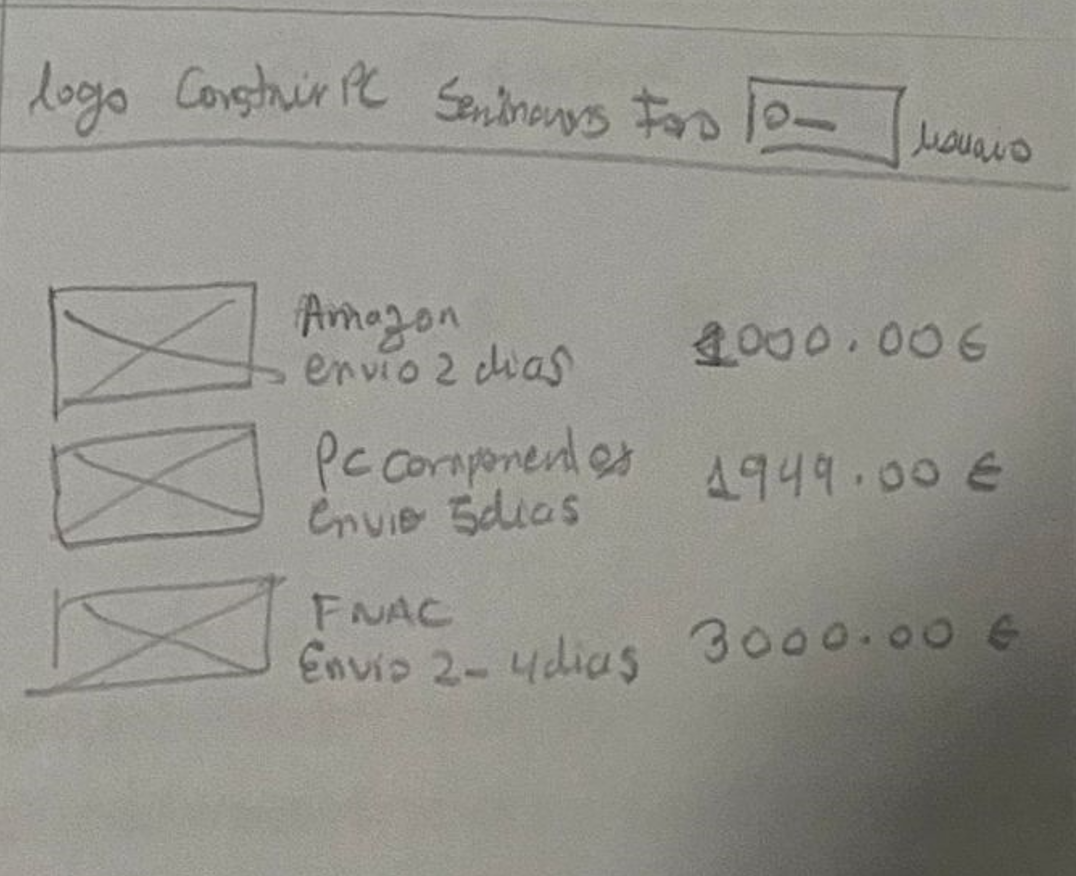 logo Construir PC Seminovos Foro Usuario
Amazon
envio 2 dias
1000.00€
Pc componentes
envio 5dias
1949.00 €
FNAC
Envio 2-4dias
3000.00 €